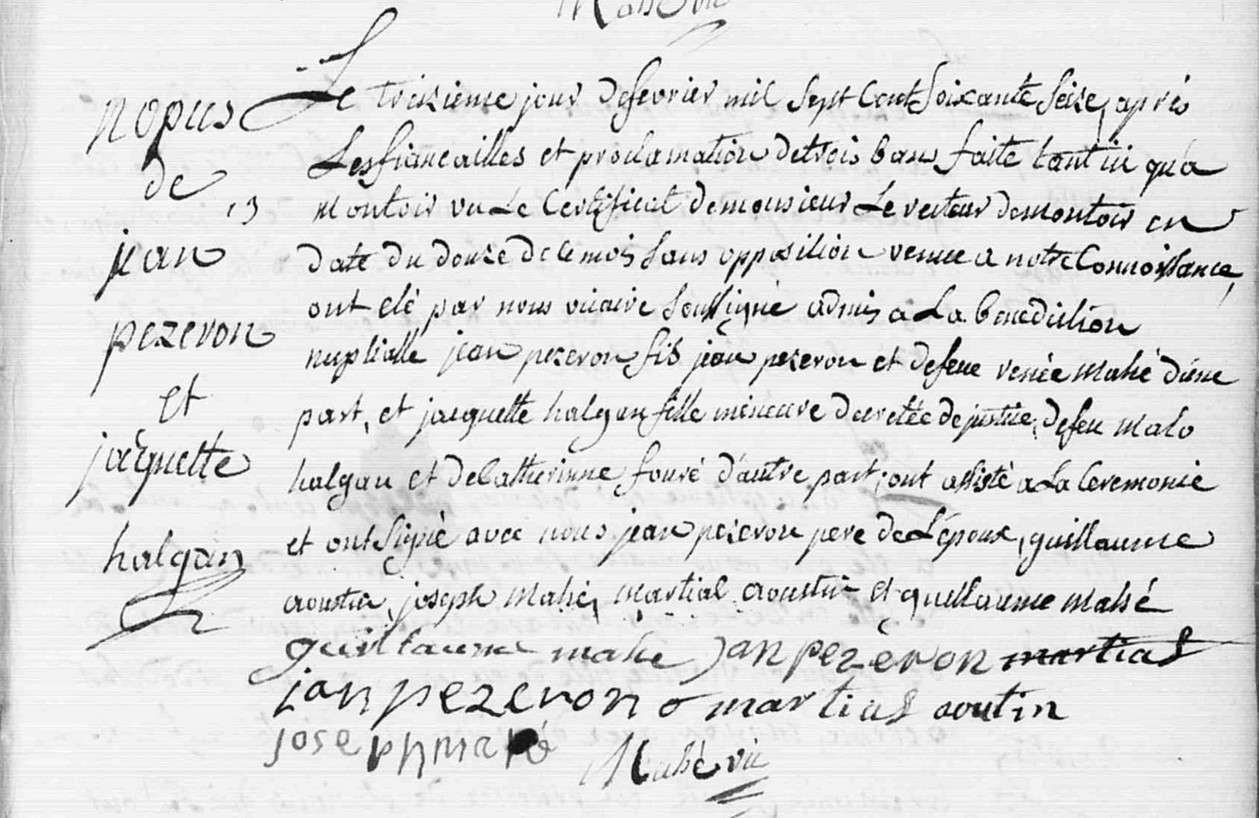 Mahé vic
nopces
de
13
jean
pezeron
et
jacquette
halgan
Le treisieme jour de fevrier mil sept Cent Soixante Seise, après
Les fiancailles et proclamation de trois bans faite tant ici qu'à
Montoir vu Le Certificat de monsieur Le recteur de montoir en
date du douze de ce mois Sans opposition venue a notre Connoissance,
ont eté par nous vicaire Soussigné admis a La benediction
nuptialle jean pezeron fils jean pezeron et de feue renée Mahé d'une
part, et jacquette halgan fille mineure decretée de justice, de feu Malo
halgan et de Catherinne fouré d'autre part, ont assisté a La Ceremonie
et ont Signé avec nous jean pezeron pere de L'epoux, guillaume
aoustin, joseph Mahé, Martial aoustin et guillaume Mahé
guillaume mahé Jan pezeron martial
jan pezeron martial aoutin
joseph mahé Mahé vic